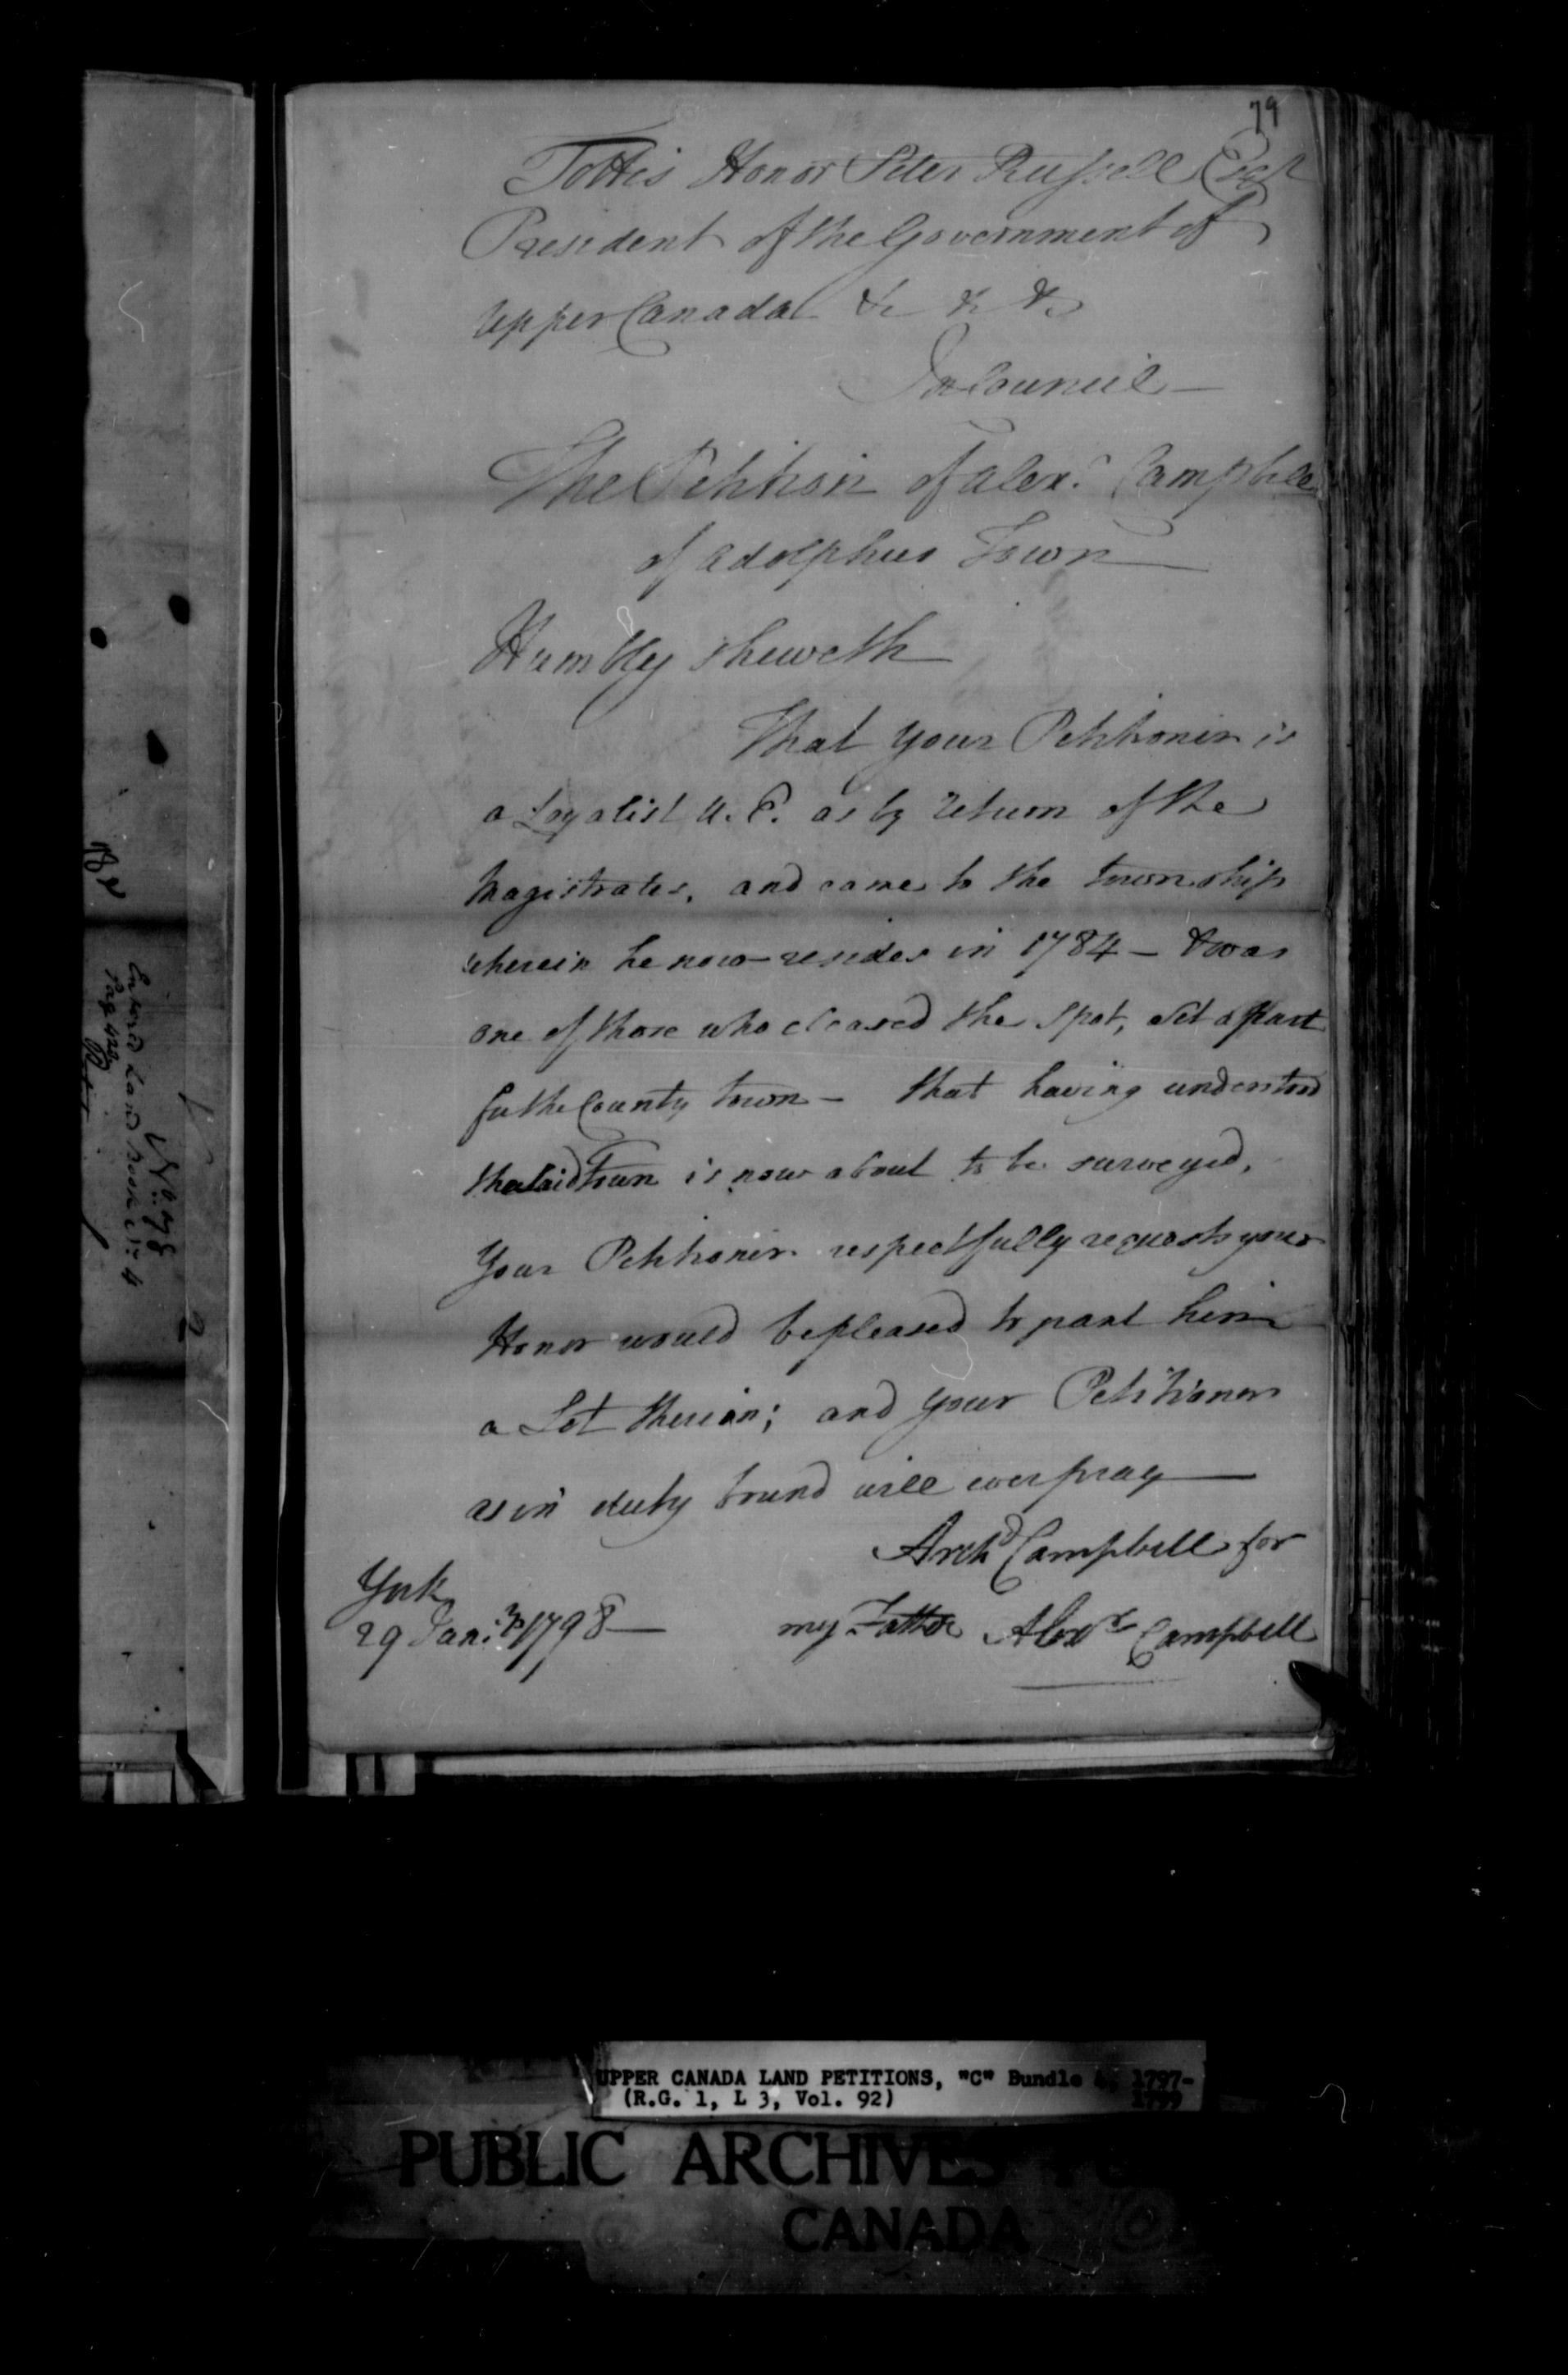 79
To His Honor Peter Russell Esqr
President of the Government of
Upper Canada &c &c &c
In Council —
The Petition of Alexr Campbell
of Adolphus Town —
Humbly sheweth —
That your Petitioner is
a Loyalist U.E. as by return of the
Magistrates, and came to the township
wherein he now resides in 1784 — & was
one of those who cleared the spot, set apart
for the County town — that having understood
the said Town is now about to be surveyed,
Your Petitioner respectfully requests your
Honor would be pleased to grant him
a Lot therein; and your Petitioner
as in duty bound will ever pray —
Archd Campbell for
my Father Alexr Campbell
York
29 Jany 1798 —
Entered Land Book No 4
Page 420
UPPER CANADA LAND PETITIONS, "C" Bundle 4, 1797-
(R.G. 1, L 3, Vol. 92) 1799
PUBLIC ARCHIVES
CANADA